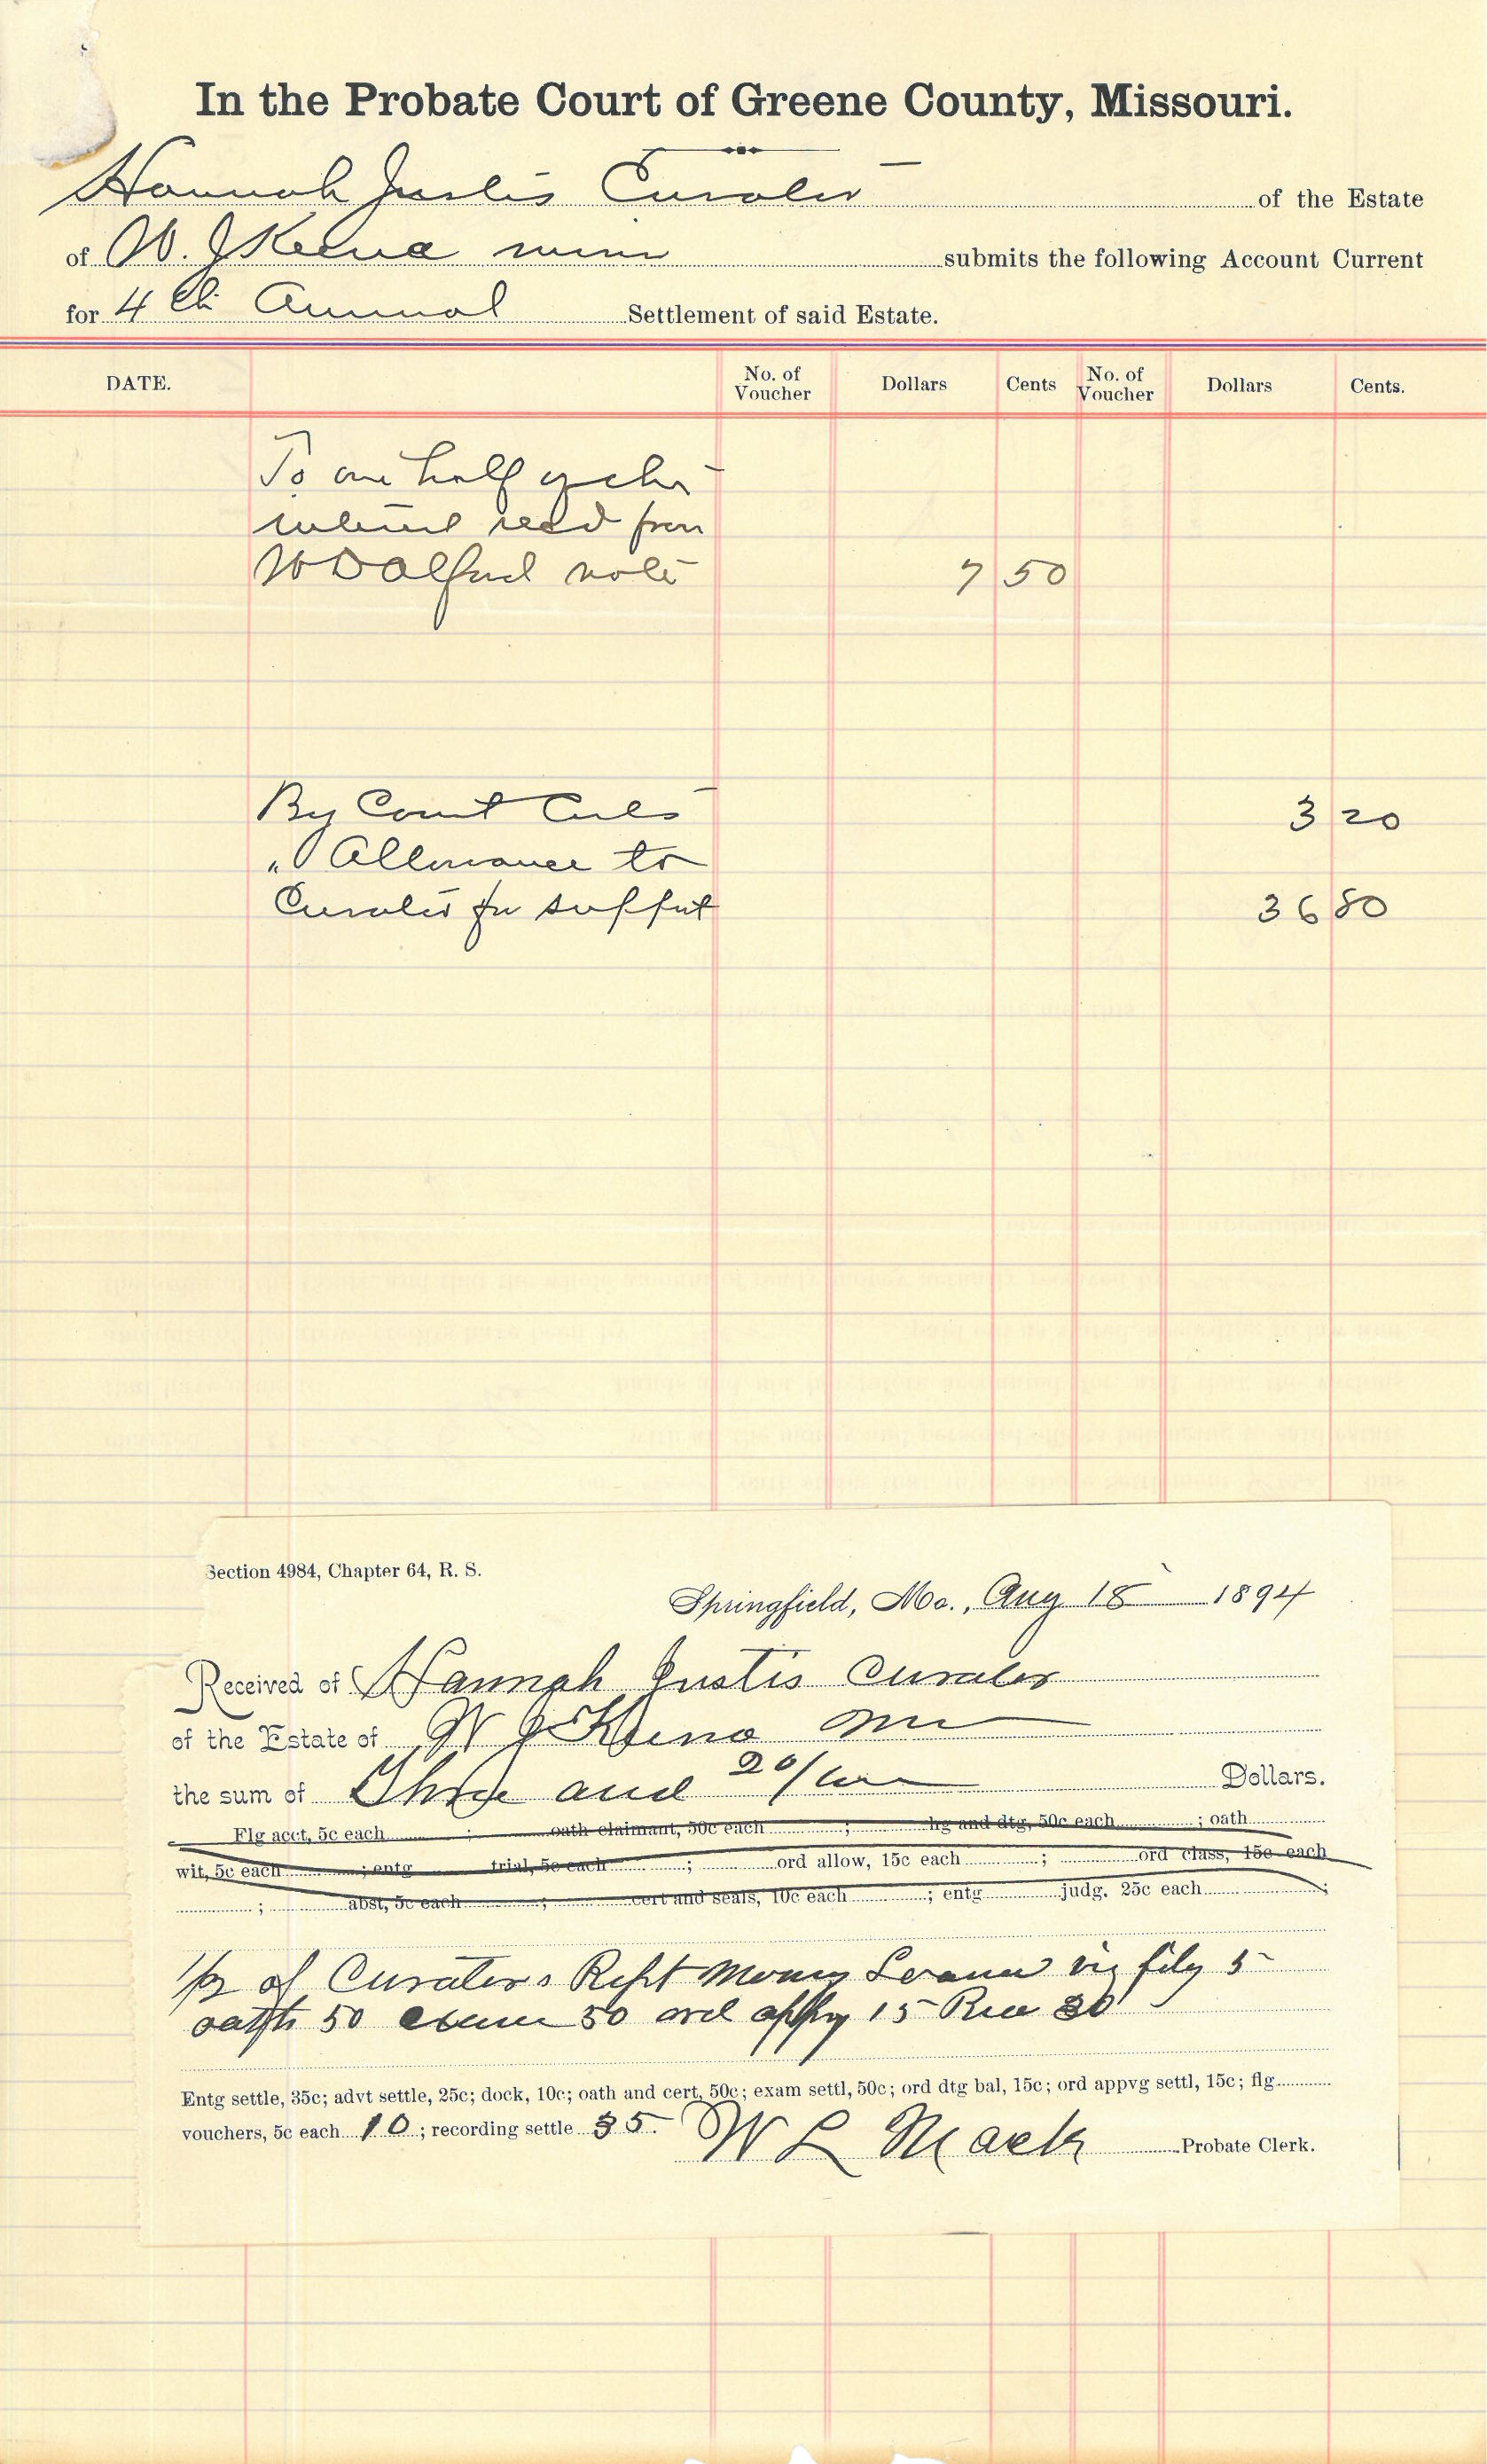 In the Probate Court of Greene County, Missouri.
Hannah Justis Curator of the Estate
of W. J Keena minor submits the following Account Current
for 4th Annual Settlement of said Estate.
DATE. No. of Voucher Dollars Cents No. of Voucher Dollars Cents.
To one half of the
interest recd from
W D Alford note 7 50
By Court Costs 3 20
" Allowance to
Curator for support 36 80
Section 4984, Chapter 64, R. S.
Springfield, Mo., Aug 18 1894
Received of Hannah Justis Curator
of the Estate of W J Keena
the sum of Three and 20/100 Dollars.
Flg acct, 5c each ; oath claimant, 50c each ; hg and dtg, 50c each ; oath
wit, 5c each ; entg trial, 5c each ; ord allow, 15c each ; ord class, 15c each
; abst, 5c each ; cert and seals, 10c each ; entg judg. 25c each ;
1/2 of Curators Rept Money Loaned viz filg 5
oath 50 exam 50 ord appvg 15 Rec 30
Entg settle, 35c; advt settle, 25c; dock, 10c; oath and cert, 50c; exam settl, 50c; ord dtg bal, 15c; ord appvg settl, 15c; flg
vouchers, 5c each 10 ; recording settle 35. W L Mack Probate Clerk.